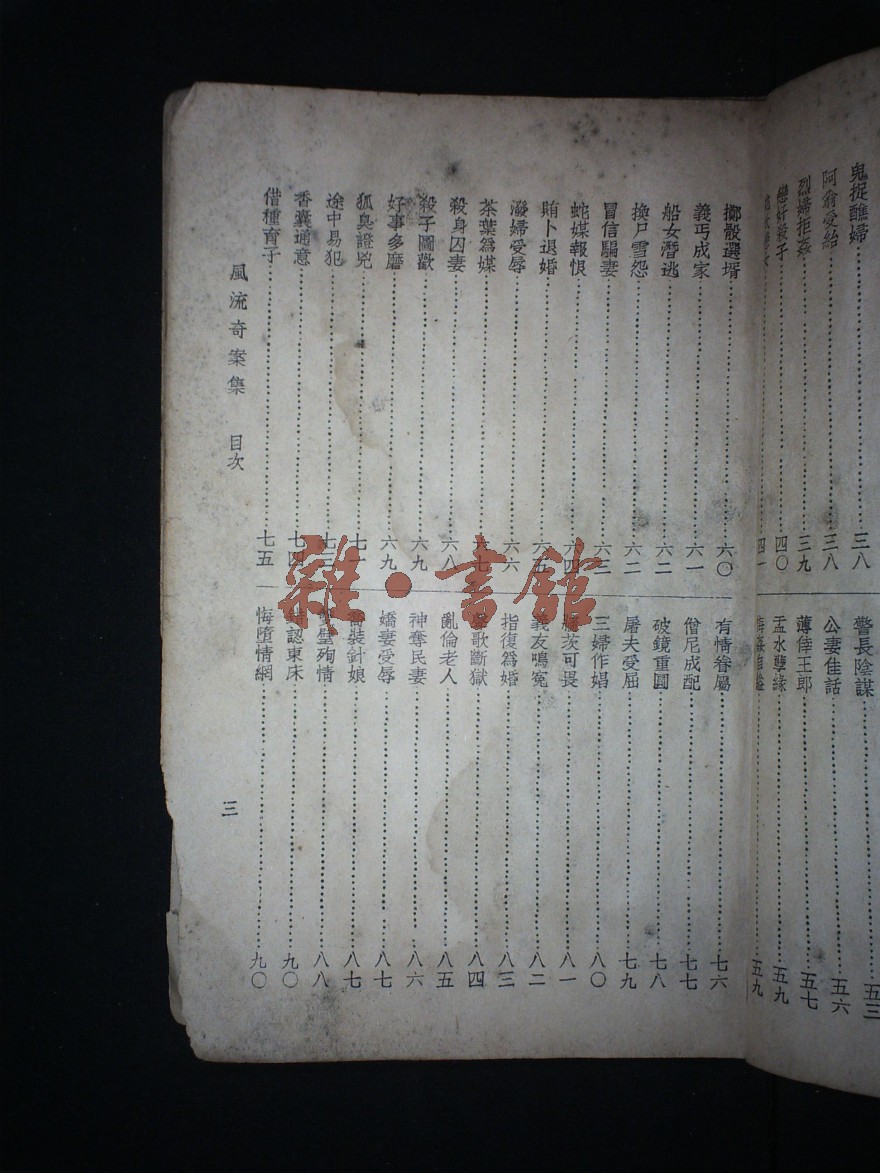 鬼捉醮婦 三八
阿翁愛給 三八
烈婦拒姦 三九
戀奸殺子 四〇
四一
警長陰謀 五三
公妻佳話 五六
薄倖王郎 五七
盂水孽緣 五九
五九
擲骰選壻 六〇
義丐成家 六一
船女潛逃 六二
換戶雪怨 六二
冒信騙妻 六三
蛇媒報恨 六四
賄卜退婚 六五
潑婦受辱 六六
茶葉爲媒 六七
殺身囚妻 六八
殺子圖歡 六九
好事多磨 六九
狐臭證兇 七一
途中易犯 七三
香囊通意 七四
借種育子 七五
有情眷屬 七六
僧尼成配 七七
破鏡重圓 七八
屠夫受屈 七九
三婦作娼 八〇
茨可畏 八一
義友鳴冤 八二
指復爲婚 八三
歌斷獄 八四
亂倫老人 八五
神奪民妻 八六
嬌妻受辱 八七
喬裝針娘 八七
雙璧殉情 八八
錯認東床 九〇
悔墮情網 九〇
風流奇案集 目次
三
雜·書館